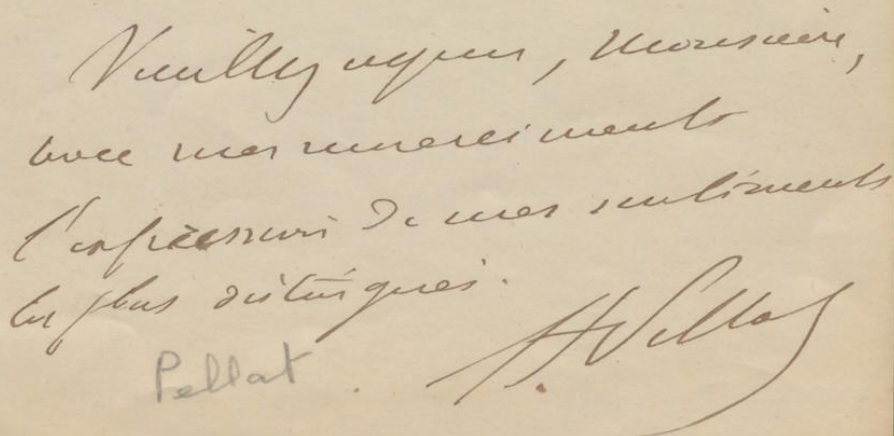 Veuillez agréer, Monsieur,
avec mes remerciments
l'expression de mes sentiments
les plus distingués.
H Pellat
Pellat